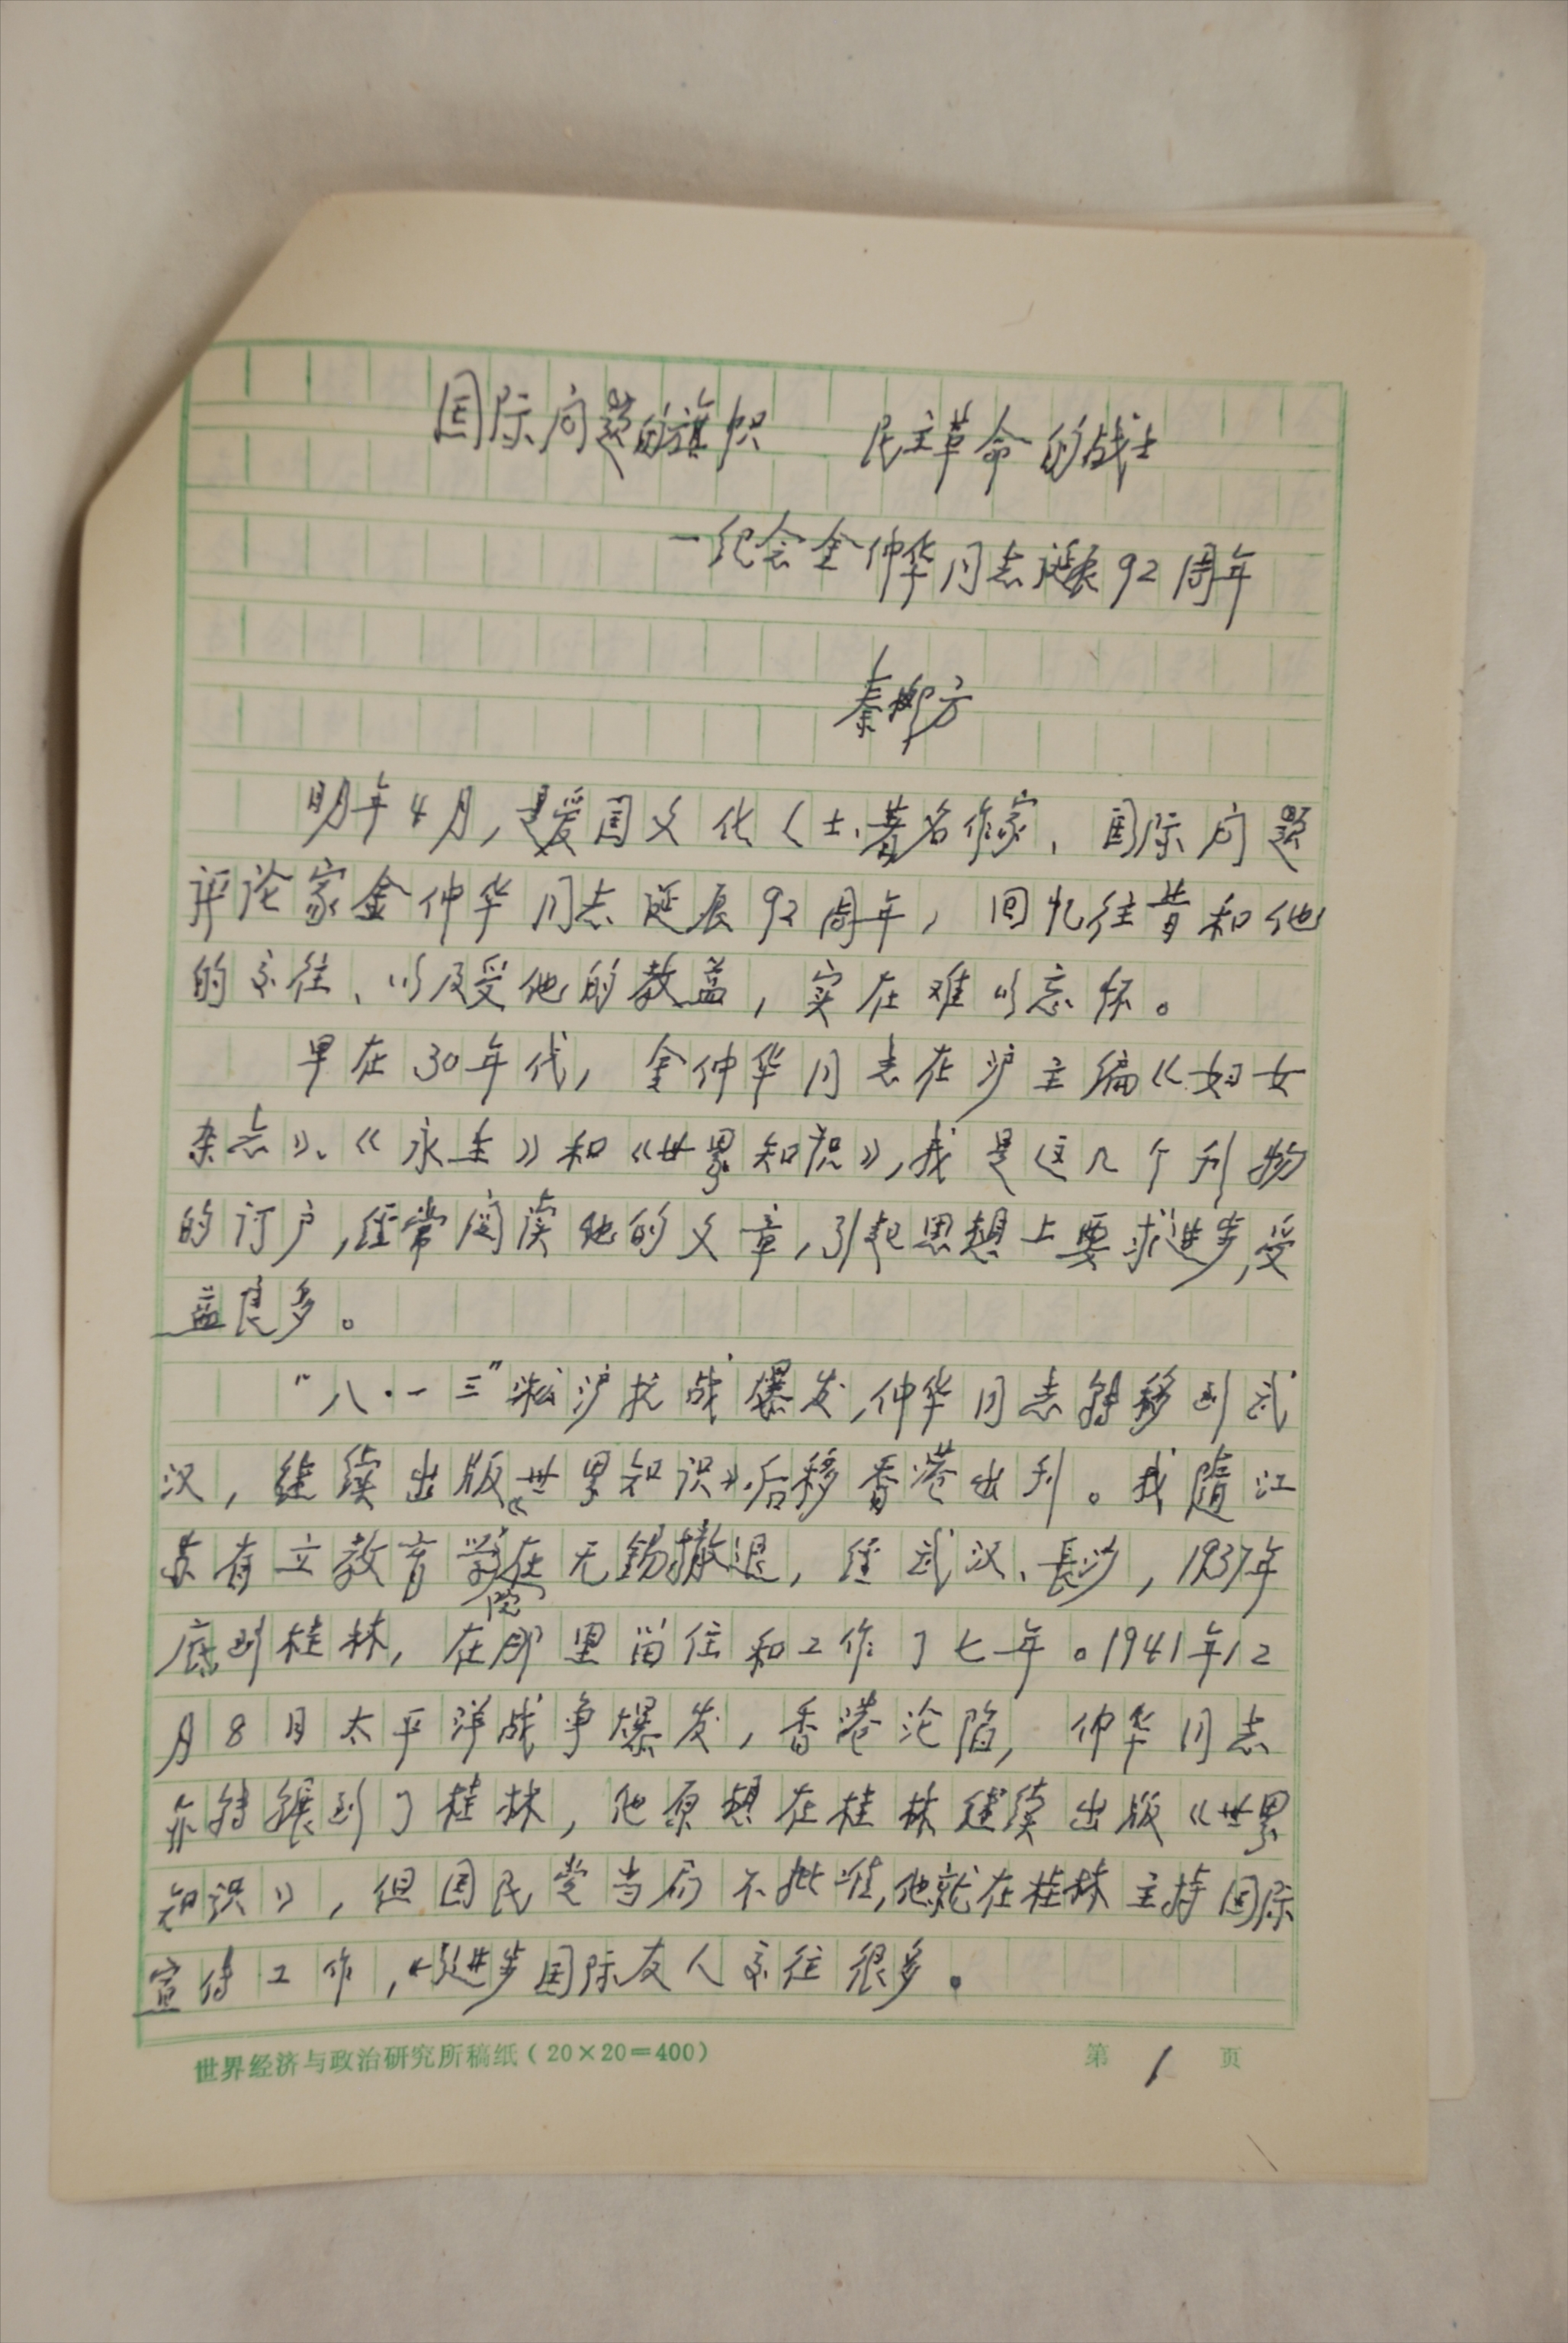 国际问题的旗帜　　民主革命的战士
一纪念金仲华同志诞辰92周年
秦柳方
明年4月，是爱国文化人士、著名作家、国际问题
评论家金仲华同志诞辰92周年，回忆往昔和他
的交往、以及受他的教益，实在难以忘怀。
早在30年代，金仲华同志在沪主编《妇女
杂志》、《永生》和《世界知识》，我是这几个刊物
的订户，经常阅读他的文章，引起思想上要求进步，受
益良多。
“八·一三”淞沪抗战爆发，仲华同志转移到武
汉，继续出版《世界知识》，后移香港出刊。我随江
苏省立教育学院在无锡撤退，经武汉、長沙，1937年
底到桂林，在那里留住和工作了七年。1941年12
月8日太平洋战争爆发，香港沦陷，仲华同志
亦转辗到了桂林，他原想在桂林继续出版《世界
知识》，但国民党当局不批准，他就在桂林主持国际
宣传工作，与进步国际友人交往很多。
世界经济与政治研究所稿纸（20×20=400）　　第 1 页